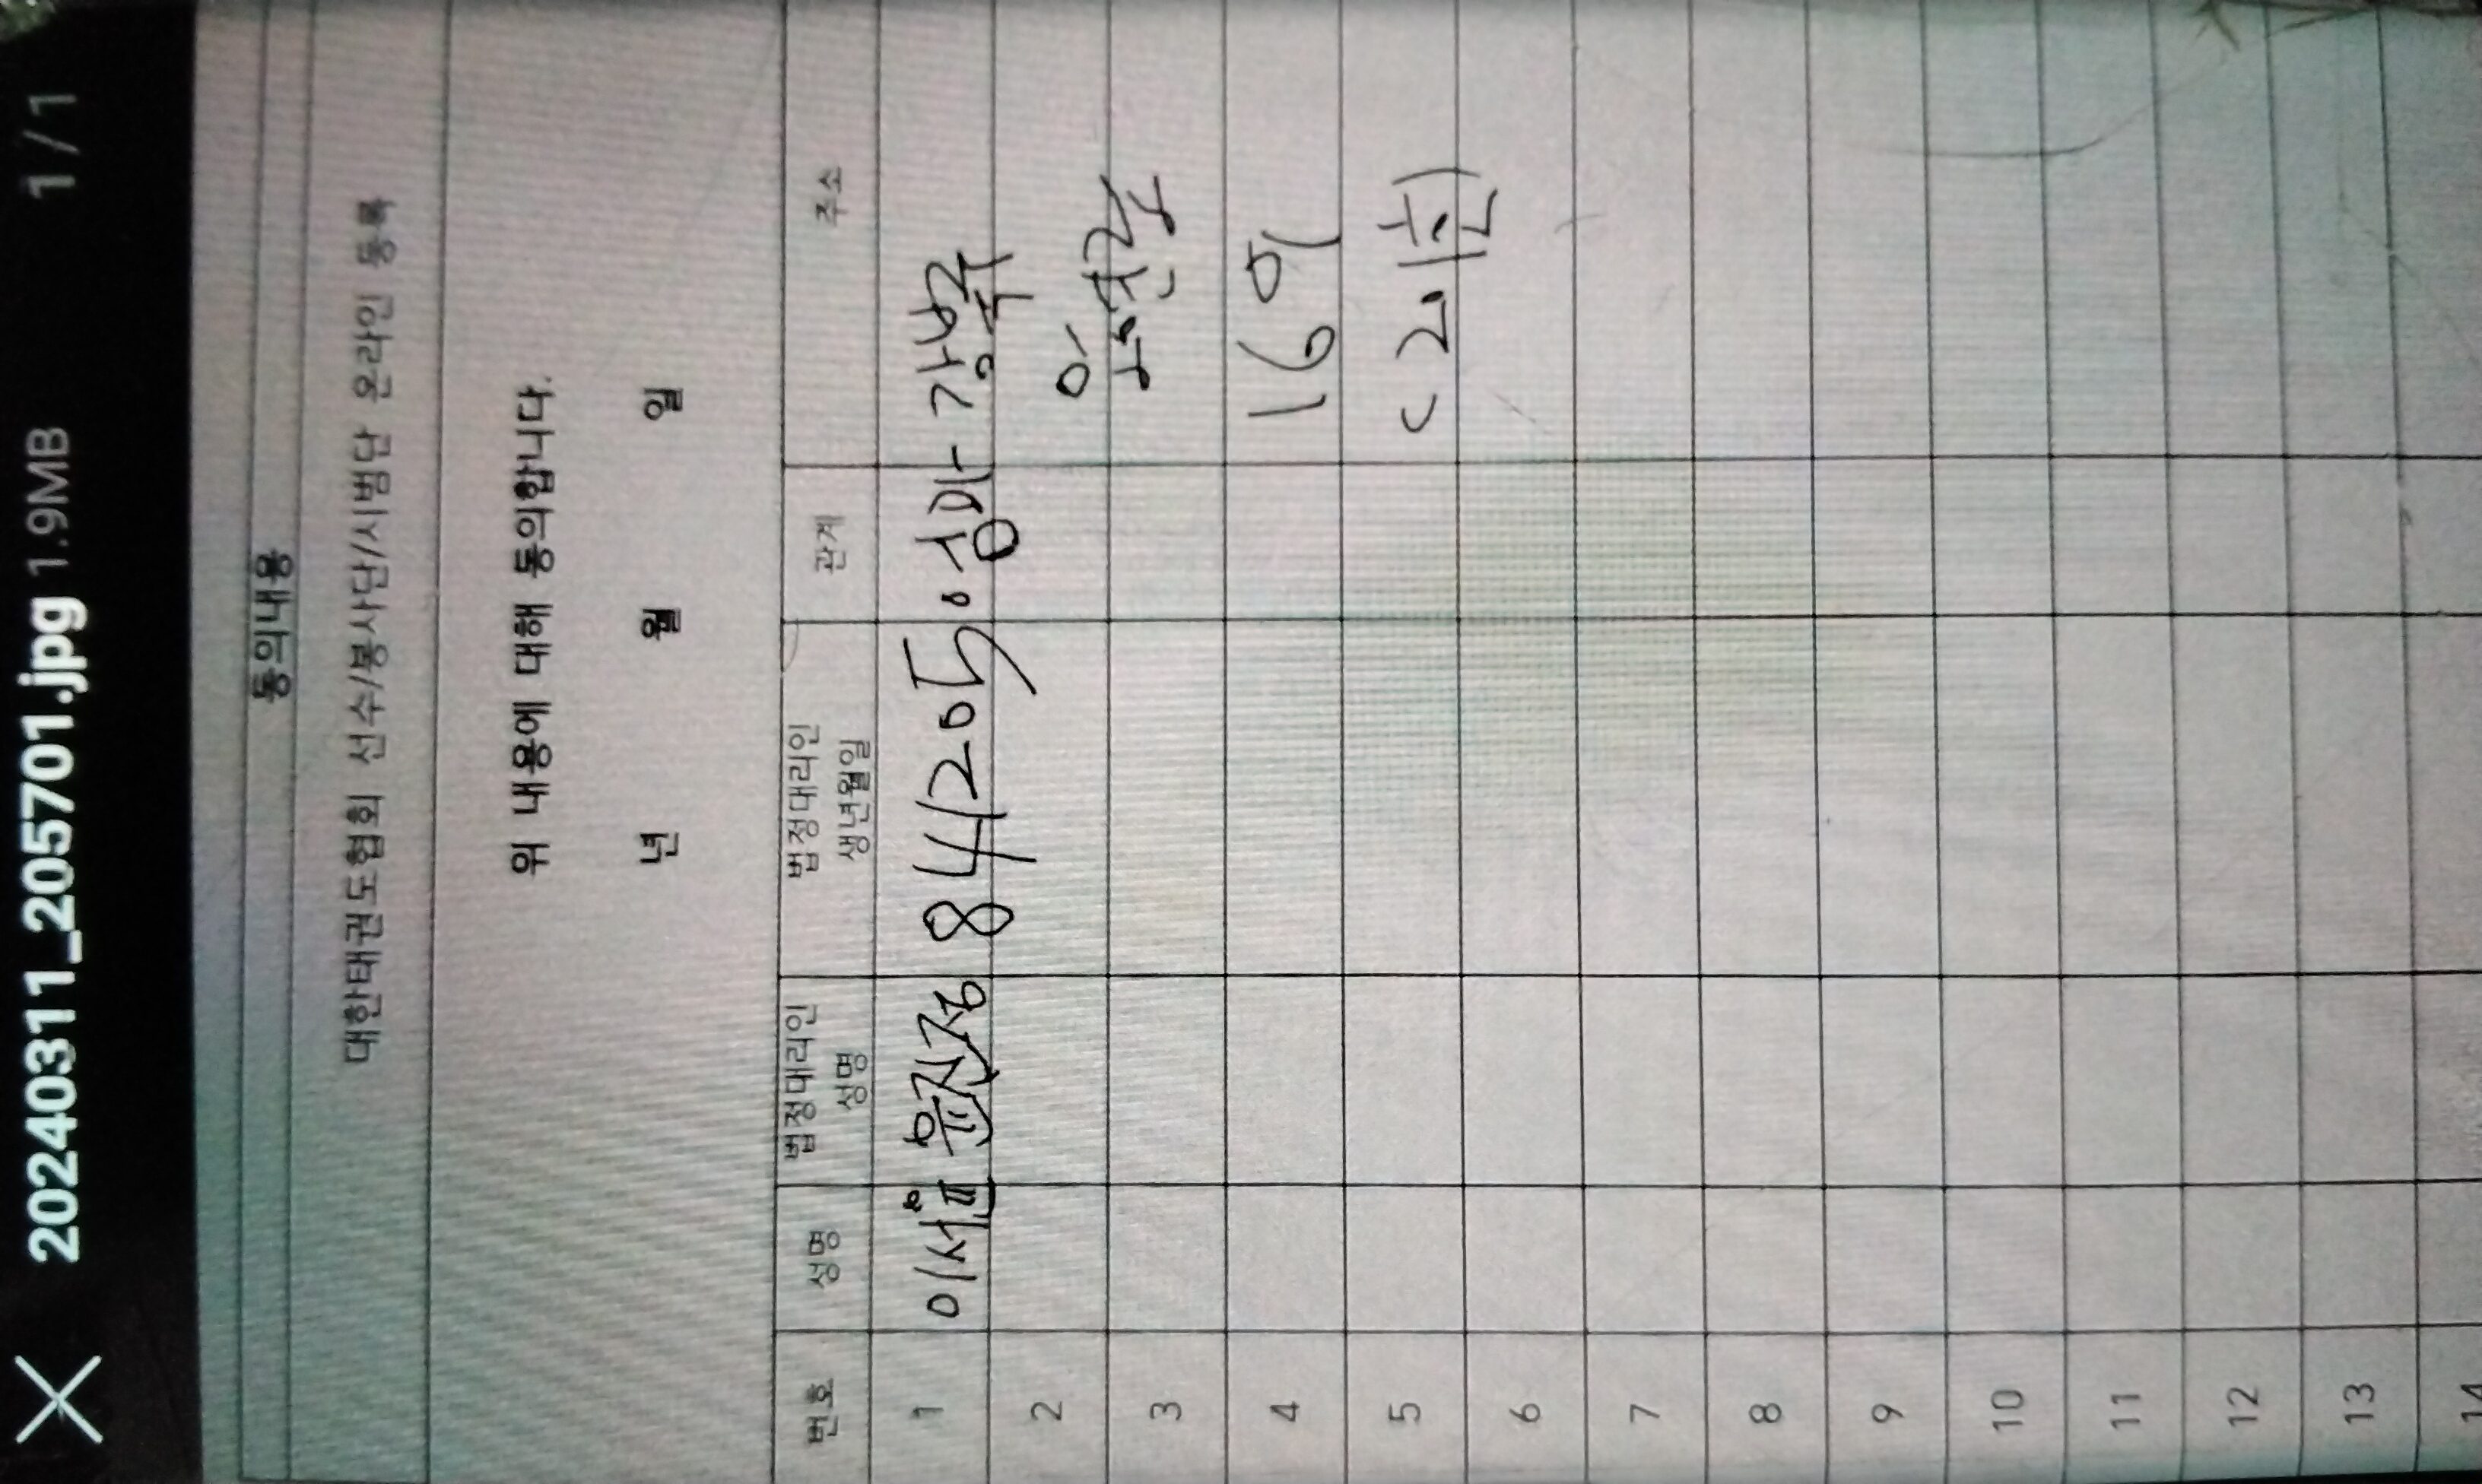 20240311_205701.jpg 1.9MB 1/1
동의내용
대한태권도협회 선수/봉사단/시범단 온라인 등록
위 내용에 대해 동의합니다.
년 월 일
번호 성명 법정대리인 성명 법정대리인 생년월일 관계 주소
1 이서윤 윤진정 841205 엄마 강남구
2
3
4 16억
5
6
7
8
9
10
11
12
13
14